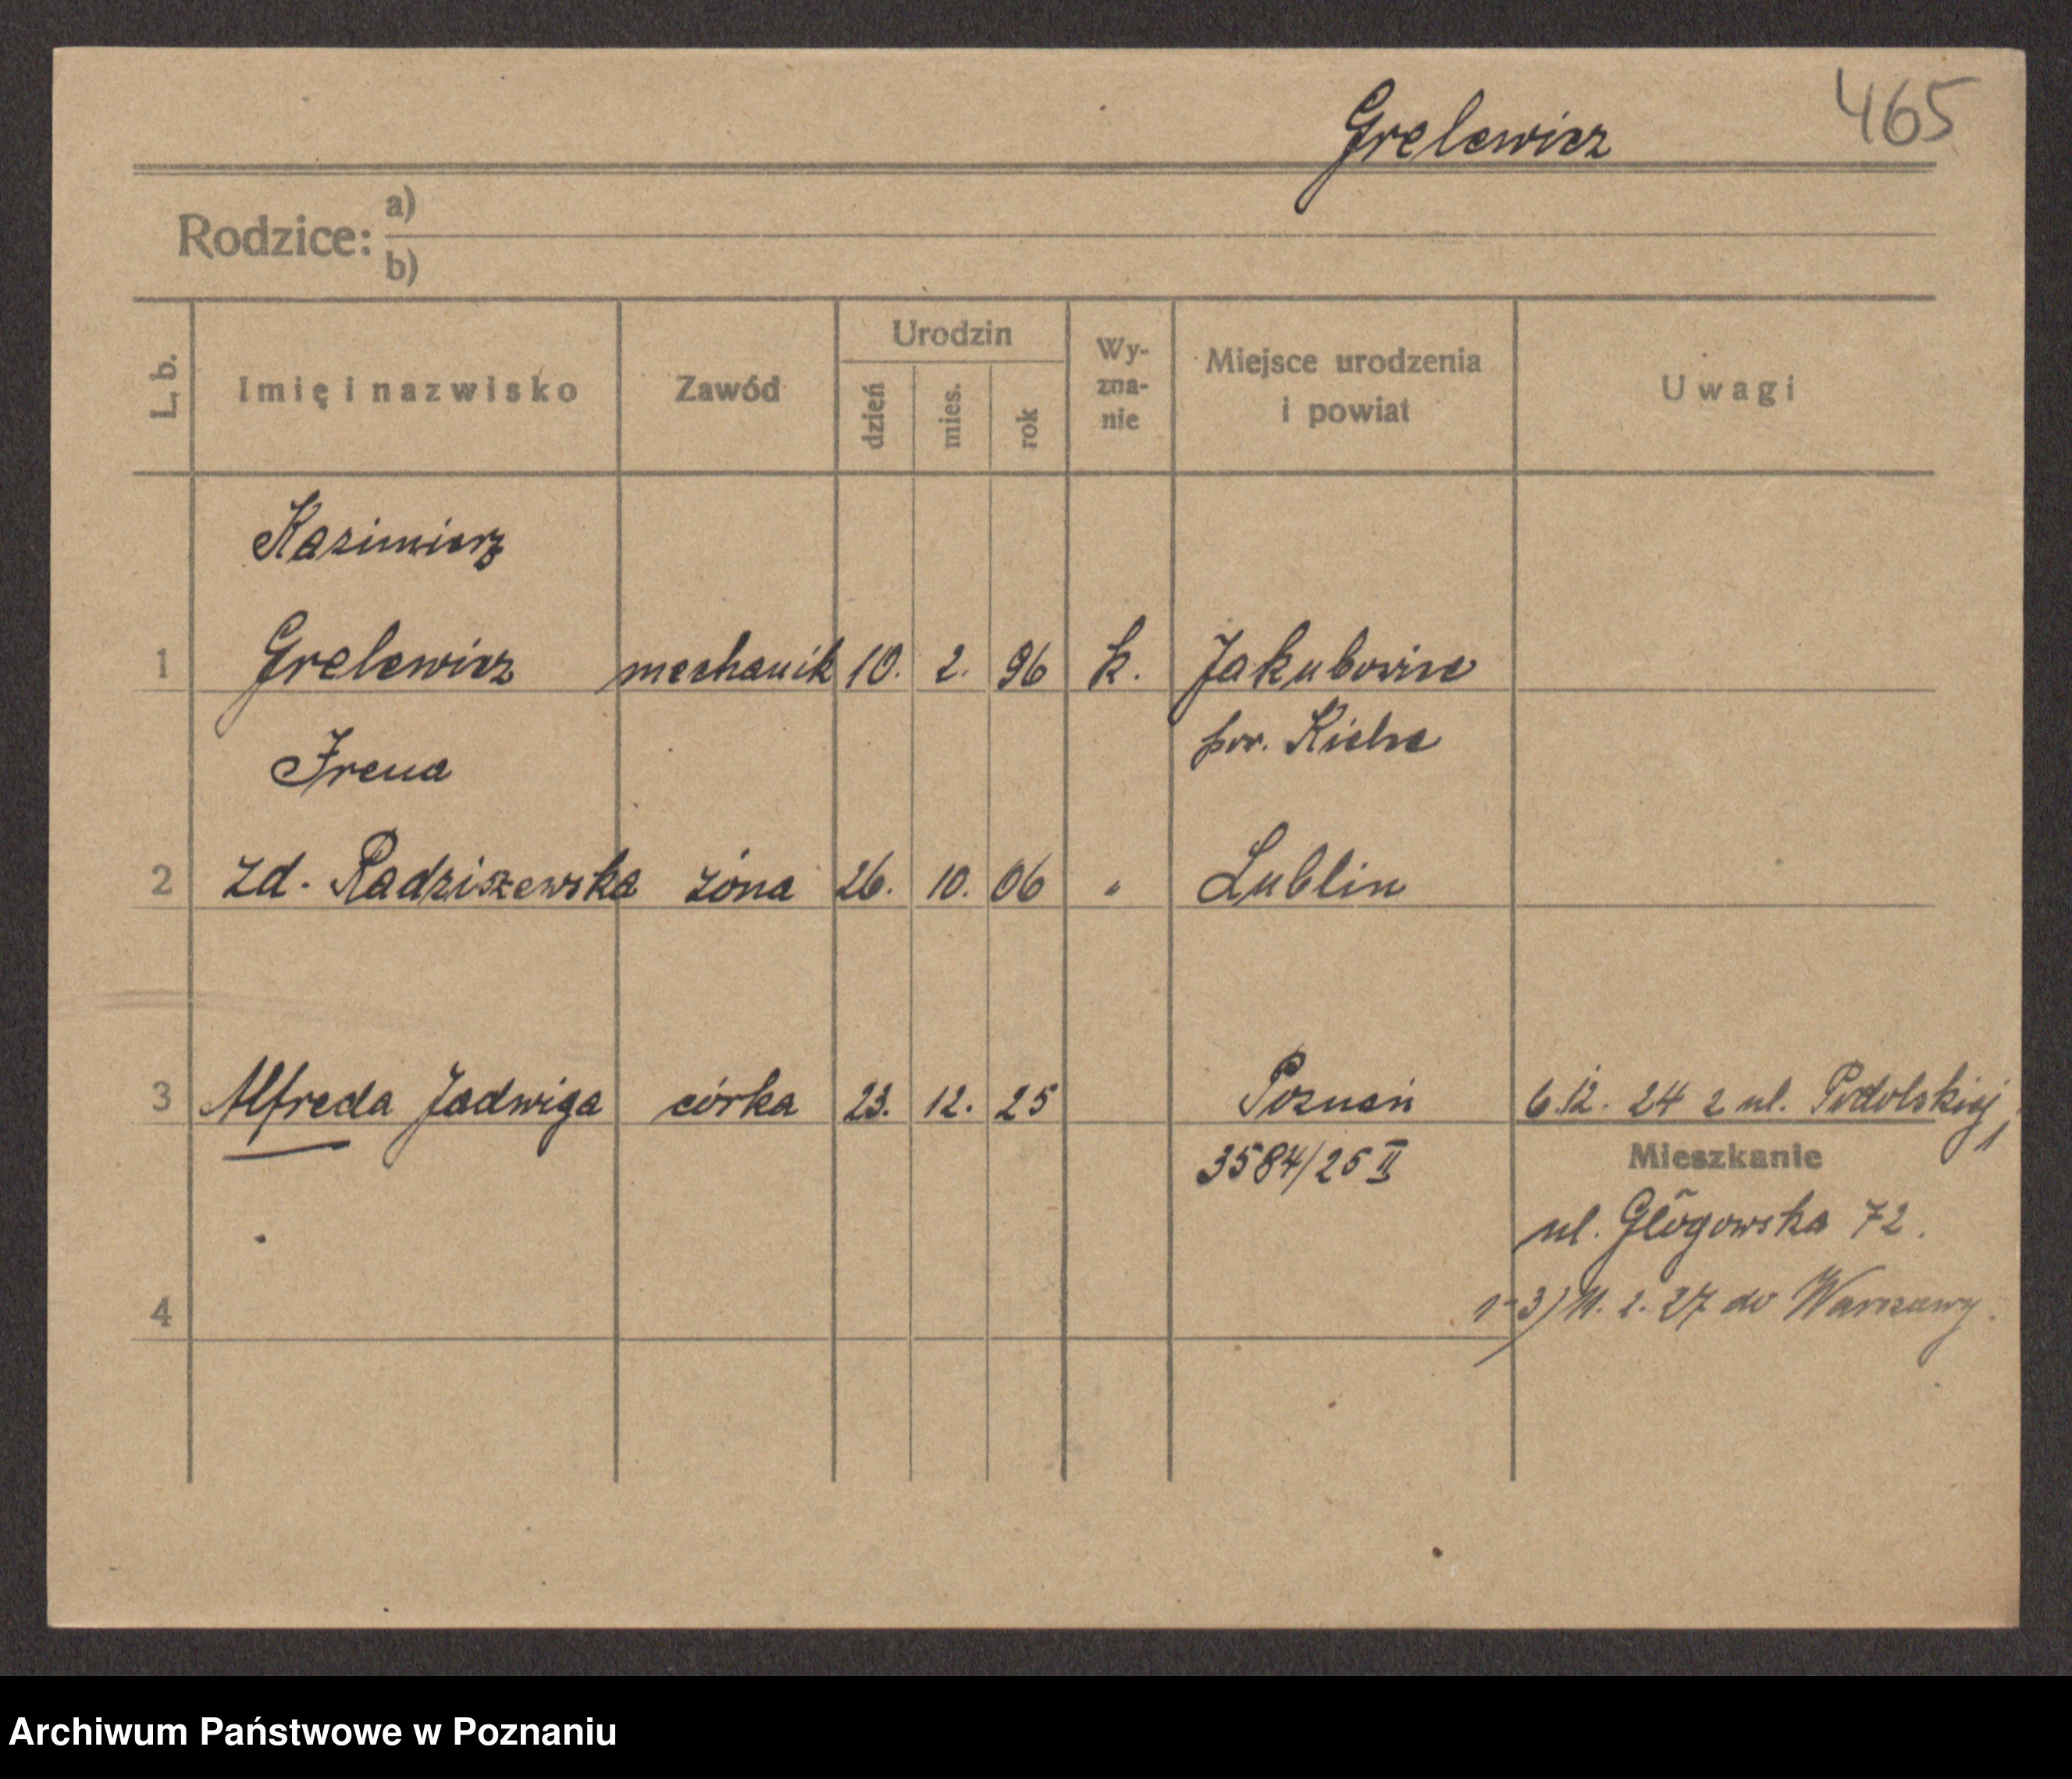 Grelewicz 465
Rodzice: a)
b)
L, b. Imię i nazwisko Zawód Urodzin dzień mies. rok Wy-zna-nie Miejsce urodzenia i powiat Uwagi
Kazimierz
1 Grelewicz mechanik 10. 2. 96 k. Jakubowice
pow. Kielce
Irena
2 zd. Radziszewska żona 26. 10. 06 " Lublin
3 Alfreda Jadwiga córka 23. 12. 25 Poznań 6.12. 24 z ul. Podolskiej 1
3584/25 II Mieszkanie
ul. Głogowska 72.
4 1-3) 11. 2. 27 do Warszawy.
Archiwum Państwowe w Poznaniu